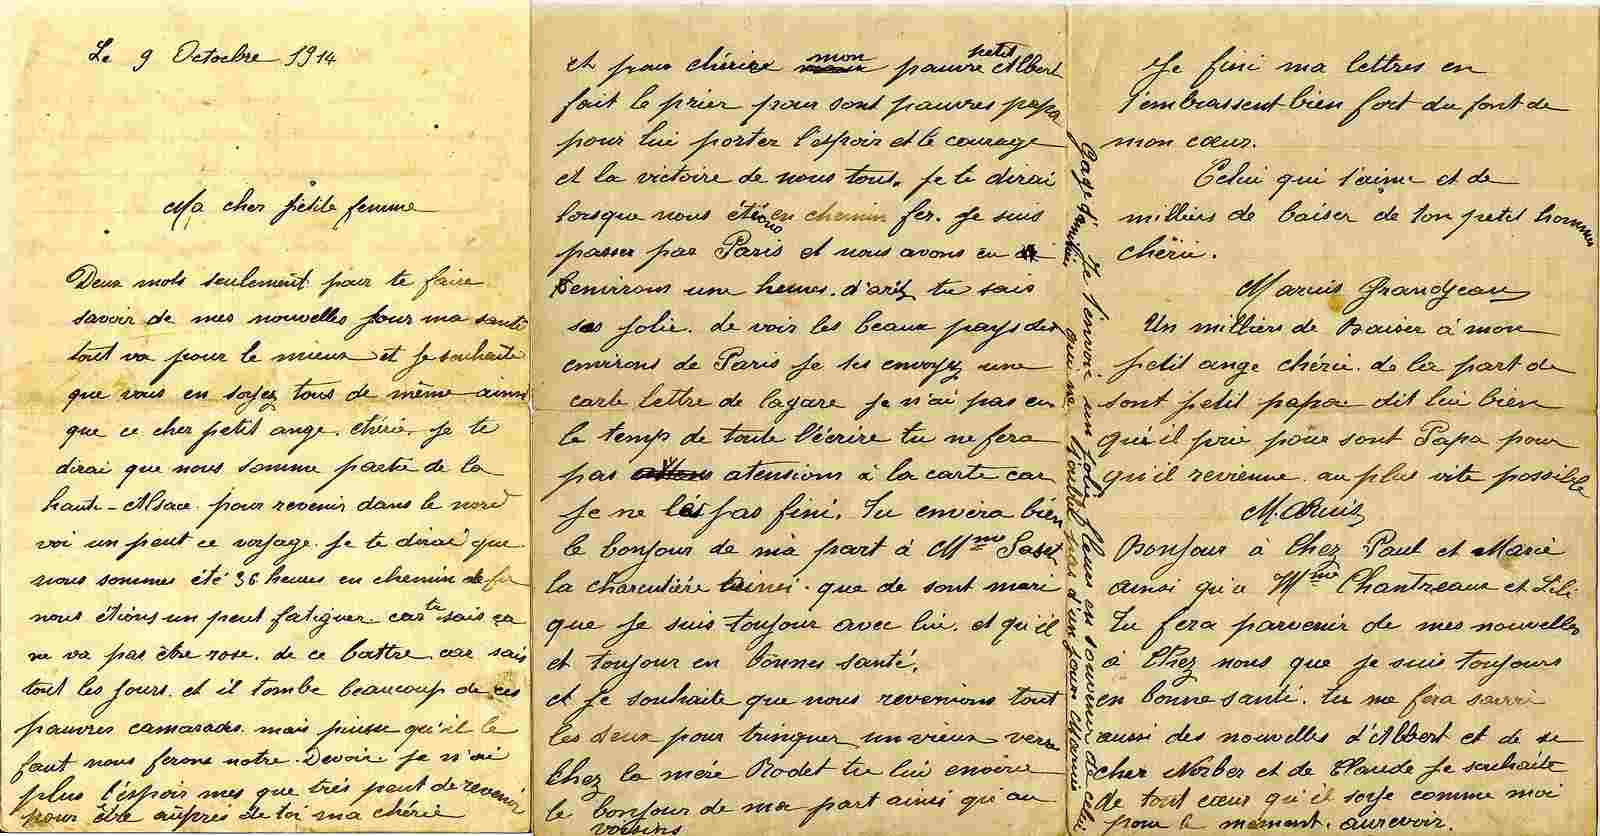 Le 9 Octocbre 1914
Ma cher petite femme
Deux mots seulement pour te faire
savoir de mes nouvelles pour ma santé
tout va pour le mieux et je souhaite
que vous en soyez tous de même ainsi
que ce cher petit ange. chérie. je te
dirai que nous somme partie de la
haute-Alsace. pour revenir dans le nord
voi un peut ce voyage. je te dirai que
nous sommes été 36 heures en chemin de fer
nous étions un peut fatiguer car tu sais ça
ne va pas être rose. de ce battre car sais
tout les jours. et il tombe beaucoup de ces
pauvres camarades. mais puisse qu'il le
faut nous ferons notre. Devoir je n'ai
plus l'éspoir mes que très peut de revenir
pour être aûprès de toi ma chérie
et pour chérire mon pauvre petit Albert
fait le prier pour sont pauvres papa
pour lui porter l'espoir et le courage
et la victoire de nous tous. je te dirai
lorsque nous étions en chemin fer. je suis
passer par Paris et nous avons eu
environs une heures. d'arêt tu sais
ses jolie. de voir les beaux pays des
environs de Paris je tes envoyez une
carte lettre de lagare je n'ai pas eu
le temp de toute l'écrire tu ne fera
pas atensions à la carte car
je ne l'ai pas fini. Tu envera bien
le bonjour de ma part à Mme
la charcutière ainsi. que de sont mari
que je suis toujour avec lui. et qu'il
et toujour en bonnes santé.
et je souhaite que nous revenions tout
les deux pour trinquer un vieux verre
Chez la mére Rodet tu lui envoira
le bonjour de ma part ainsi qu'au
voisins
Gage d'amitier Je t'envoie un jolie fleurs en souvenir de celui
qui ne t'oublil pas d'un jour. Maruis
Je fini ma lettres en
t'embrassent bien fort du font de
mon cœur.
Celui qui t'aime et de
milliers de baiser de ton petit hommes
chérie.
Maruis Grandjean
Un milliers de Baiser à mon
petit ange chérie. de la part de
sont petit papa dit lui bien
qu'il prie pour sont Papa pour
qu'il revienne. au plus vite possible
Maruis
Bonjour à Chez Paul et Marie
ainsi qu'a Mme Chantreaux et Lili
Tu fera parvenir de mes nouvelles
à Chez nous que je suis toujours
en bonne santé. tu me fera savoir
aussi des nouvelles d'Albert et de se
cher Norber et de Claude je souhaite
de tout cœur qu'il soye comme moi
pour le moment. aurevoir.